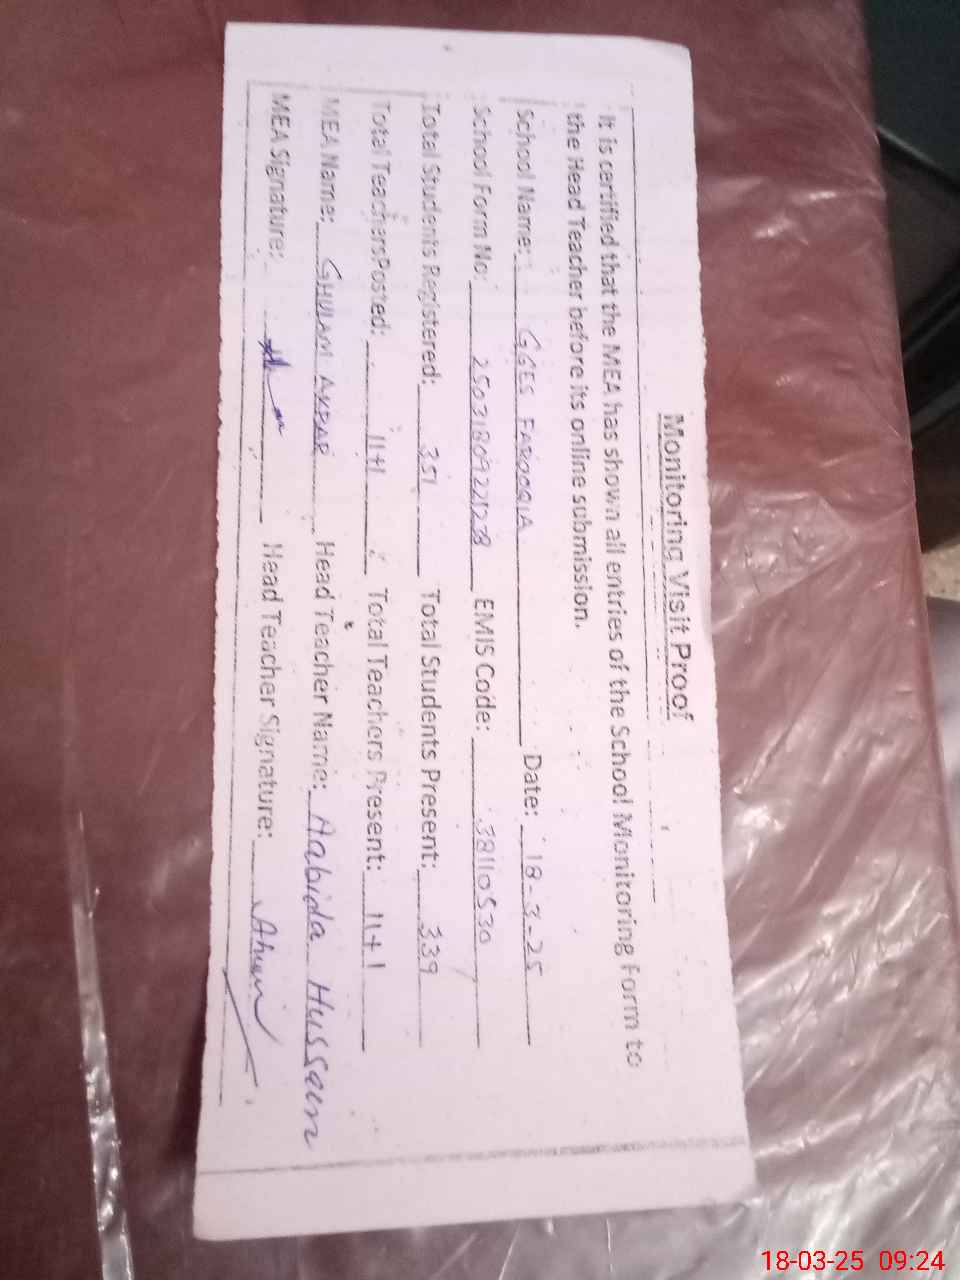 Monitoring Visit Proof
It is certified that the MEA has shown all entries of the School Monitoring Form to
the Head Teacher before its online submission.
School Name: GGES FAROOQIA Date: 18-3-25
School Form No: 250318092212 EMIS Code: 38110530
Total Students Registered: 351 Total Students Present: 339
Total Teachers Posted: 11+1 Total Teachers Present: 11+1
MEA Name: GHULAM AKBAR Head Teacher Name: Aabida Hussain
MEA Signature: Head Teacher Signature:
18-03-25 09:24